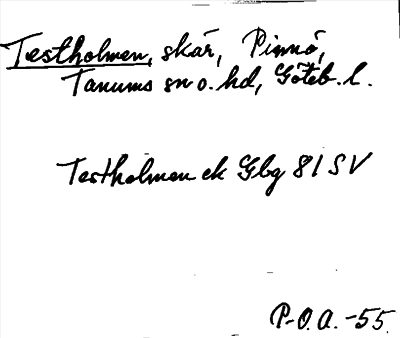 Testholmen, skär, Pinnö,
Tanums sn o. hd, Göteb. l.
Testholmen ek Gbg 81 SV
P-O.A. -55.